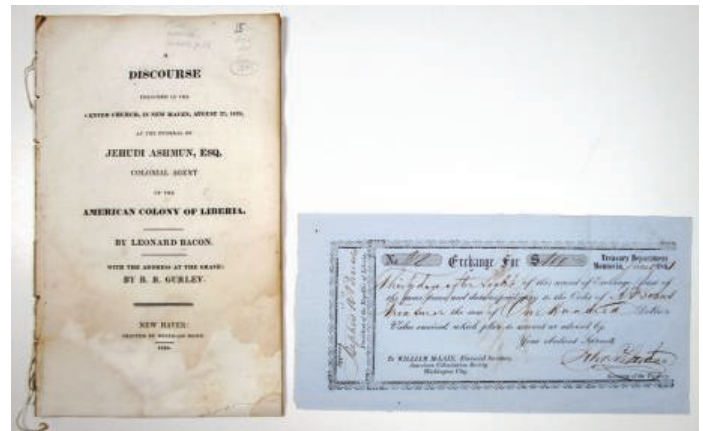 A
DISCOURSE
PREACHED IN THE
CENTER CHURCH, IN NEW HAVEN, AUGUST 27, 1828,
AT THE FUNERAL OF
JEHUDI ASHMUN, ESQ.
COLONIAL AGENT
OF THE
AMERICAN COLONY OF LIBERIA.
BY LEONARD BACON.
WITH THE ADDRESS AT THE GRAVE:
BY R. R. GURLEY.
NEW HAVEN:
PRINTED BY HEZEKIAH HOWE
1828.
No Exchange For $ 100 Treasury Department
Monrovia,
Thirty days after Sight of this second of Exchange first of
the same tenor and date unpaid pay to the Order of
Treasurer the sum of One Hundred Dollars
Value received, which place to account as advised by
Your obedient Servant
To WILLIAM McLAIN, Financial Secretary,
American Colonization Society
Washington City.